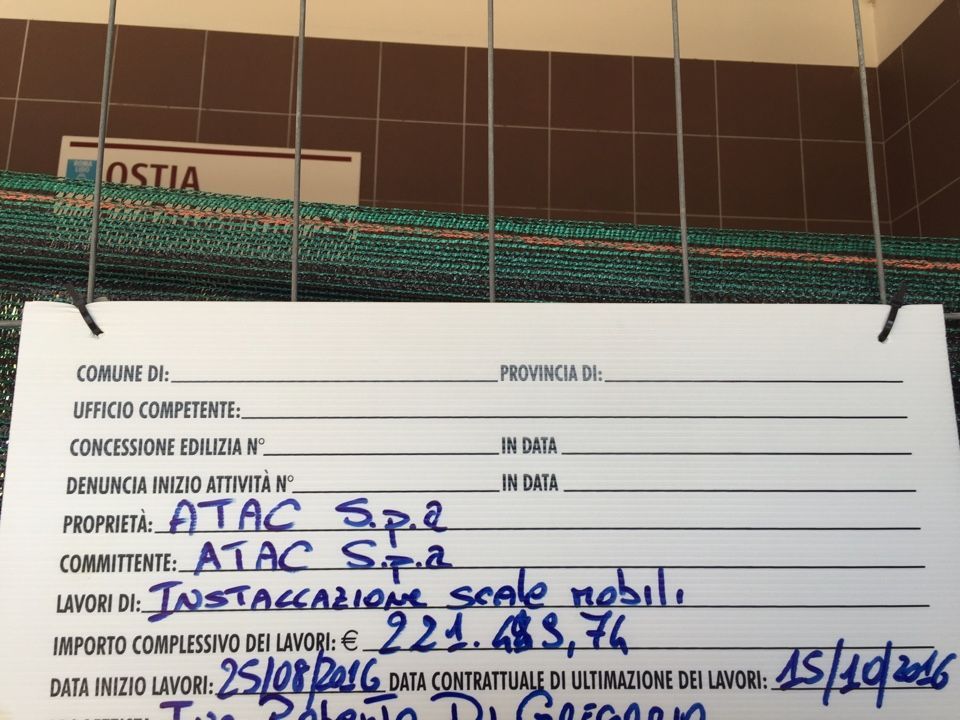 ROMA
OSTIA
COMUNE DI: PROVINCIA DI:
UFFICIO COMPETENTE:
CONCESSIONE EDILIZIA N° IN DATA
DENUNCIA INIZIO ATTIVITÀ N° IN DATA
PROPRIETÀ: ATAC S.p.a
COMMITTENTE: ATAC S.p.a
LAVORI DI: INSTALLAZIONE scale mobili
IMPORTO COMPLESSIVO DEI LAVORI: €
DATA INIZIO LAVORI: 25/08/2016 DATA CONTRATTUALE DI ULTIMAZIONE DEI LAVORI: 15/10/2016
Roberto Di Gregorio